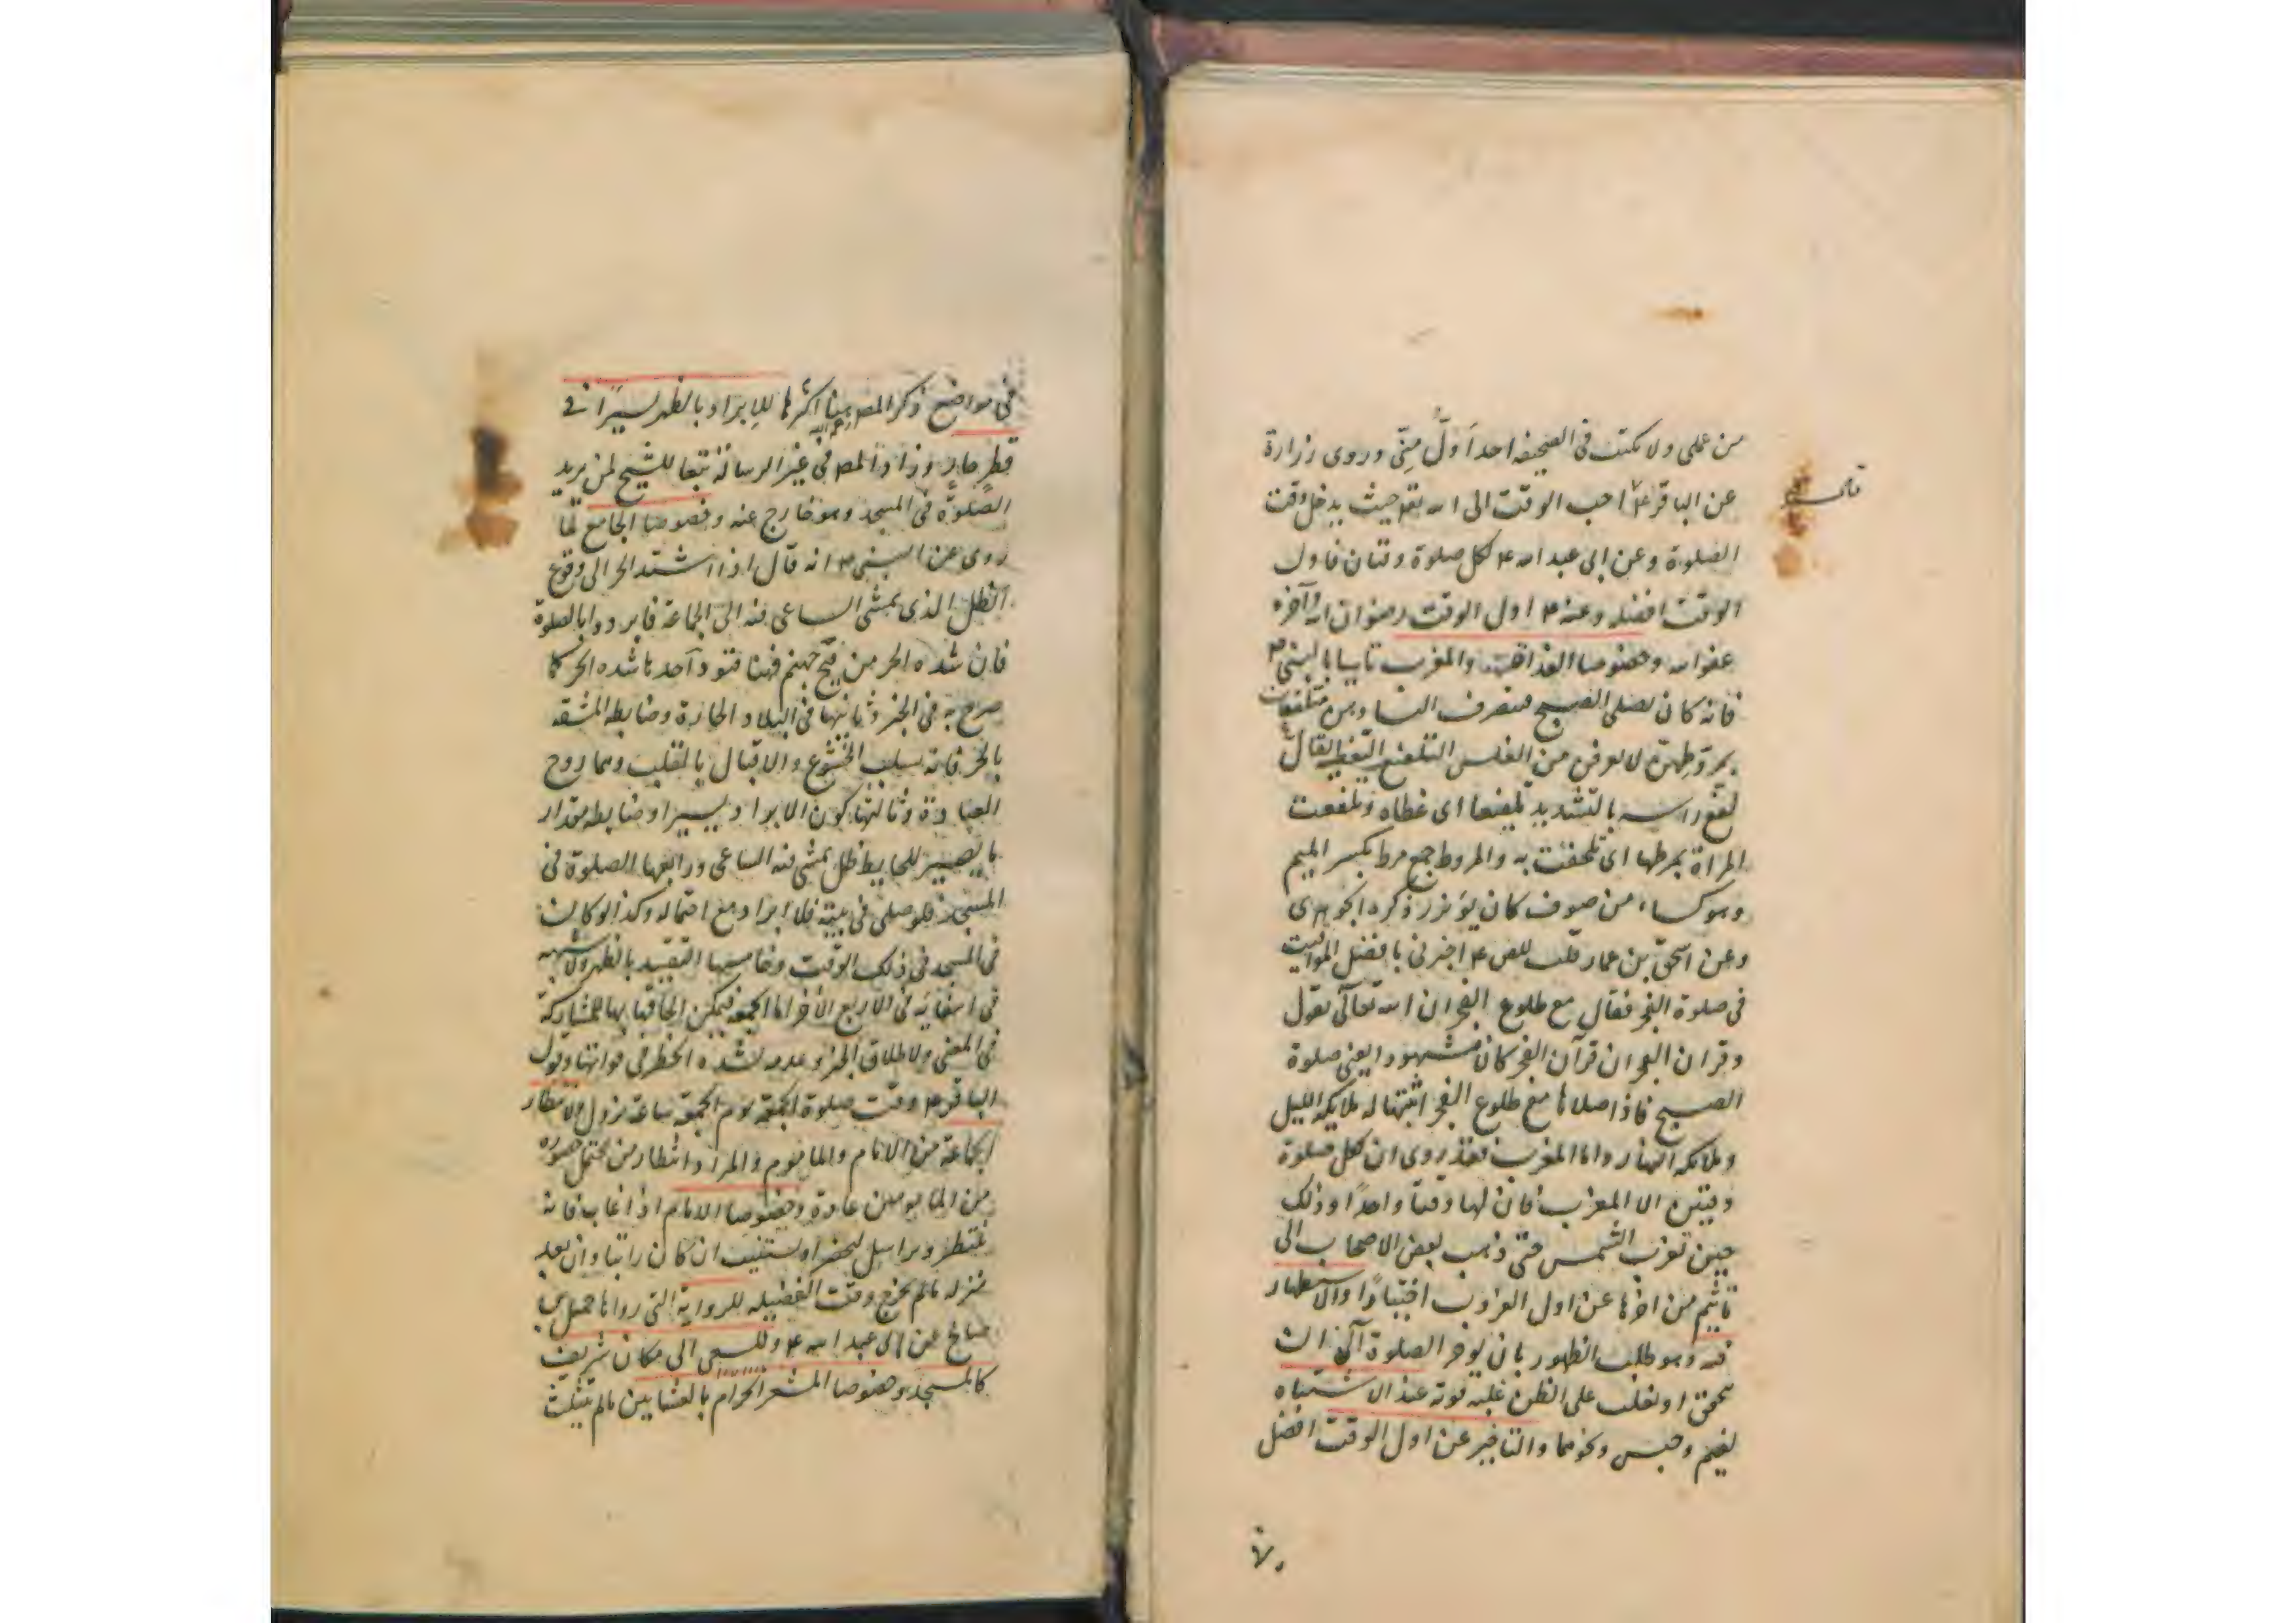 من عملى ولا يكتب فى الصحيفه احد اَوَلَّ مِنّى وروى زرارة
عن الباقر ع احب الوقت الى الله تع حيث يدخل وقت
الصلوة وعن ابى عبد الله ع لكل صلوة وقتان فاول
الوقت افضله وعنه ع اول الوقت رضوان الله وآخره
عفو الله وخصوصا الغداة والمغرب تاسيا بالنبى ص
فانه كان يصلى الصبح فينصرف النساء وهن متلفعات
بمروطهن لا يعرفن من الغلس التلفع التغطى يقال
لفع راسه بالتشديد تلفيعا اى غطاه وتلفعت
المراة بمرطها اى تلحفت به والمروط جمع مرط بكسر الميم
وهو كساء من صوف كان يؤتزر ذكره الجوهرى
وعن اسحق بن عمار قلت للص ع اخبرنى بافضل المواقيت
فى صلوة الفجر فقال مع طلوع الفجر ان الله تعالى يقول
وقران الفجر ان قرآن الفجر كان مشهودا يعنى صلوة
الصبح فاذا صلاها مع طلوع الفجر اثبتها له ملايكة الليل
وملايكه النهار واما المغرب فقد روى ان لكل صلوة
وقتين الا المغرب فان لها وقتا واحدًا وذلك
حين تغرب الشمس حتى ذهب بعض الاصحاب الى
تاثيم من اخرها عن اول الغروب اختيارًا والاستظهار
فيه وهو طلب الظهور بان يؤخر الصلوة الى ان
يتحقق او يغلب على الظن غلبه قوته عند الاشتباه
لغيم وحبس ونحوهما والتاخير عن اول الوقت افضل
فى مواضع ذكر المصـ هنا اكثرها للابراد بالظهر يسيرًا فى
رحمه الله
قطرٍ حارٍ وزاد المصـ فى غير الرسالة تبعا للشيخ لمن يريد
الصلوة فى المسجد وهو خارج عنه وخصوصا الجامع لما
روى عن النبى ص انه قال اذا اشتد الحر الى وقوع
الظل الذى يمشى الساعى فيه الى الجماعة فابردوا بالصلوة
فان شده الحر من فيح جهنم فهنا قيود احدها شده الحر كما
صرح به فى الخبر وثانيها فى البلاد الحارة وضابطه المشقه
بالحر فانه يسلب الخشوع والاقبال بالقلب وهما روح
العبادة وثالثها كون الابراد يسيرا وضابطه مقدار
ما يصير للحايط ظل يمشى فيه الساعى ورابعها الصلوة فى
المسجد فلو صلى فى بيته فلا ابراد مع احتماله وكذا لو كان
فى المسجد فى ذلك الوقت وخامسها التقييد بالظهر ولا شبهه
فى انتفائه فى الاربع الاخر اما الجمعه فيمكن الحاقها بها للمشاركة
فى المعنى ولاطلاق الخبر وعدمه لشده الخطر فى فواتها وقول
الباقر ع وقت صلوة الجمعة يوم الجمعة ساعة تزول ولانتظار
الجماعة من الامام والماموم والمراد انتظار من يحتمل حضوره
من المامومين عادة وخصوصا الامام اذا غاب فانه
ينتظر ويراسل ليحضر او يستنيب ان كان راتبا وان بعد
منزله مالم يخرج وقت الفضيله للرواية التى رواها جميل بن
صالح عن ابى عبد الله ع وللسعى الى مكان شريف
كالمسجد وخصوصا المشعر الحرام بالعشايين مالم يتثلث